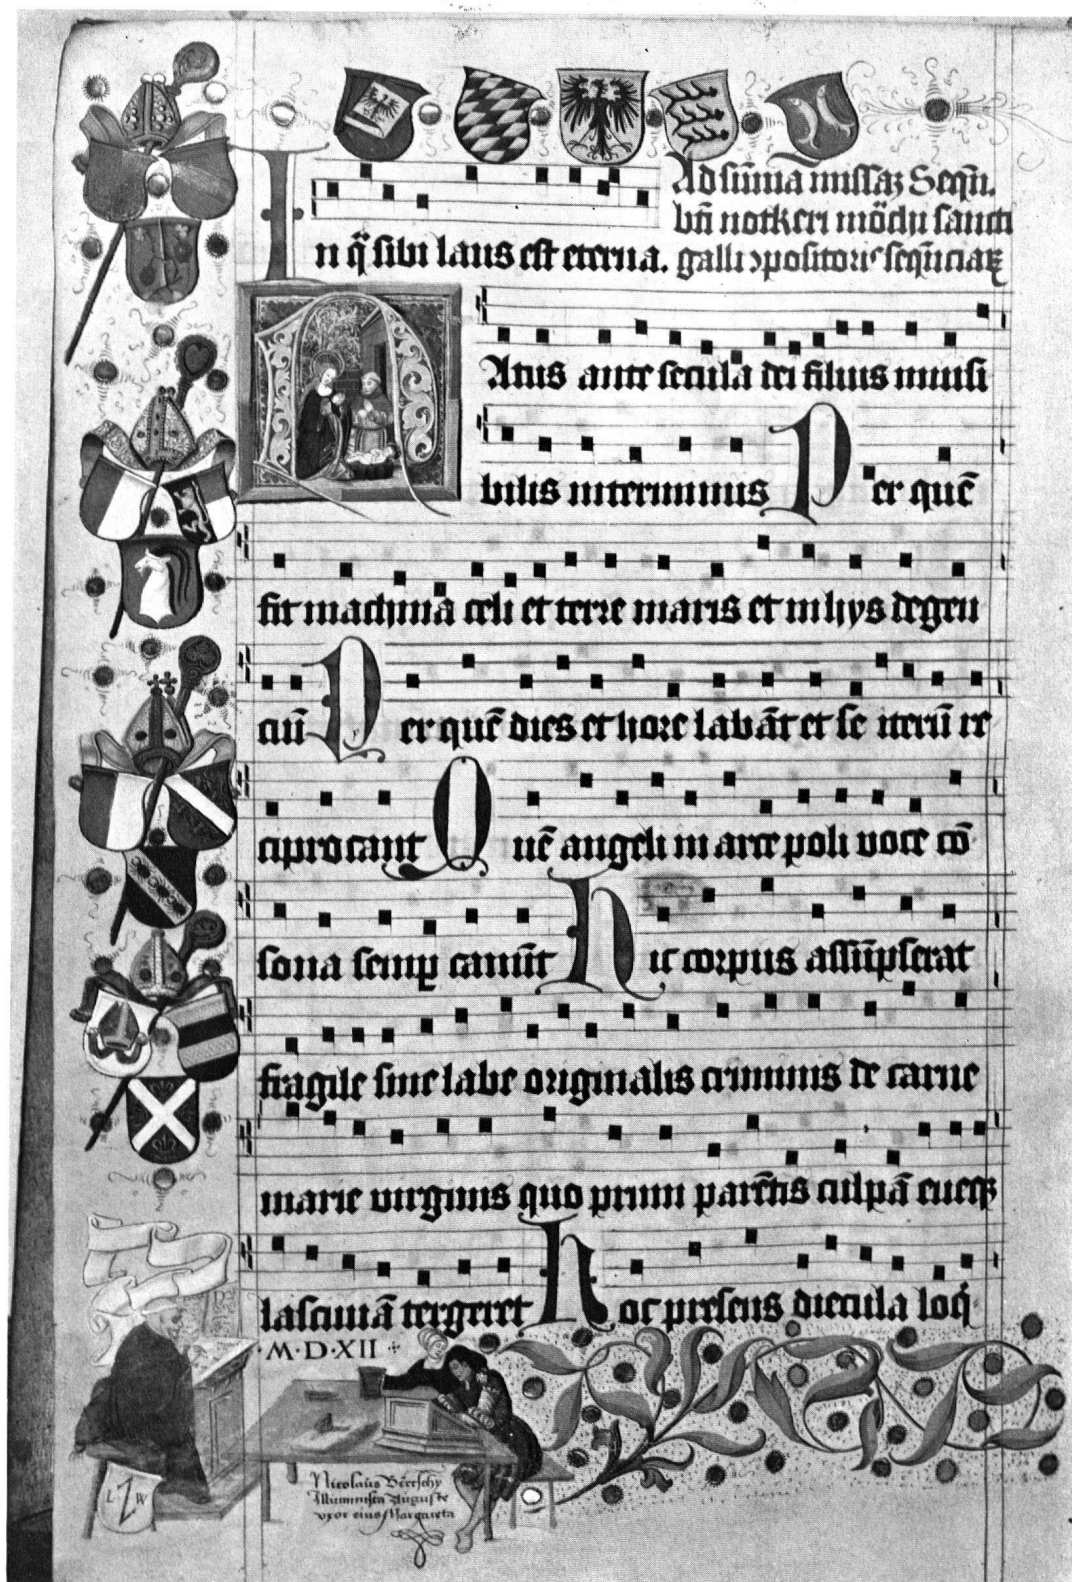 Ad sūmā missaꝫ Seqū.
bt̄i notkeri mōchi sancti
In q̄ sibi laus est eterna. galli ↄpositoris seqūciaꝝ
NAtus ante secula dei filius inuisi
bilis interminus Per quē
fit machina celi et terre maris et in hys degen
ciū Per quē dies et hore labāt et se iterū re
ciprocant Quē angeli in arce poli voce cō
sona semꝑ canūt Hic corpus assūpserat
fragile sine labe originalis criminis de carne
marie virginis quo primi parētis culpā eueqꝫ
lasciuiā tergeret Hoc presens diecula loq̇
·M·D·XII·
Nicolaus Bertschy
Illuminista Auguste
vxor eius Margareta
L W